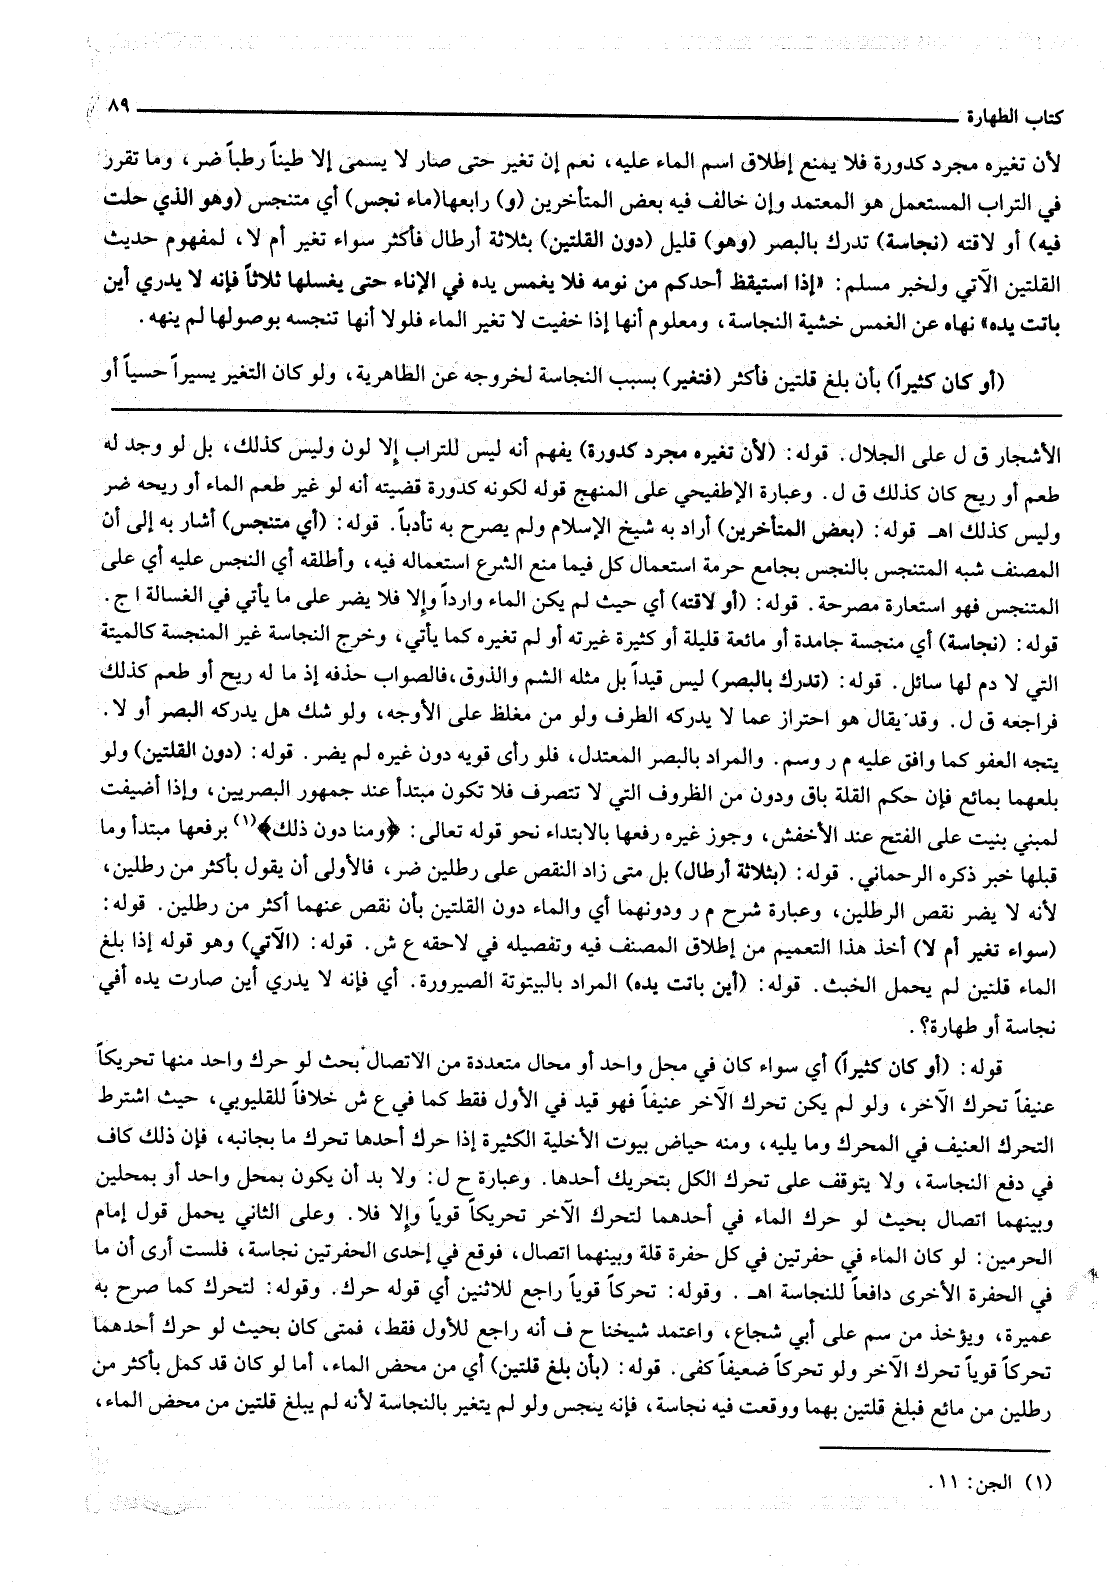 كتاب الطهارة ٨٩
لأن تغيره مجرد كدورة فلا يمنع إطلاق اسم الماء عليه، نعم إن تغير حتى صار لا يسمى إلا طيناً رطباً ضر، وما تقرر
في التراب المستعمل هو المعتمد وإن خالف فيه بعض المتأخرين (و) رابعها(ماء نجس) أي متنجس (وهو الذي حلت
فيه) أو لاقته (نجاسة) تدرك بالبصر (وهو) قليل (دون القلتين) بثلاثة أرطال فأكثر سواء تغير أم لا، لمفهوم حديث
القلتين الآتي ولخبر مسلم: «إذا استيقظ أحدكم من نومه فلا يغمس يده في الإناء حتى يغسلها ثلاثاً فإنه لا يدري أين
باتت يده» نهاه عن الغمس خشية النجاسة، ومعلوم أنها إذا خفيت لا تغير الماء فلولا أنها تنجسه بوصولها لم ينهه.
(أو كان كثيراً) بأن بلغ قلتين فأكثر (فتغير) بسبب النجاسة لخروجه عن الطاهرية، ولو كان التغير يسيراً حسياً أو
الأشجار ق ل على الجلال. قوله: (لأن تغيره مجرد كدورة) يفهم أنه ليس للتراب إلا لون وليس كذلك، بل لو وجد له
طعم أو ريح كان كذلك ق ل. وعبارة الإطفيحي على المنهج قوله لكونه كدورة قضيته أنه لو غير طعم الماء أو ريحه ضر
وليس كذلك اهـ قوله: (بعض المتأخرين) أراد به شيخ الإسلام ولم يصرح به تأدباً. قوله: (أي متنجس) أشار به إلى أن
المصنف شبه المتنجس بالنجس بجامع حرمة استعمال كل فيما منع الشرع استعماله فيه، وأطلقه أي النجس عليه أي على
المتنجس فهو استعارة مصرحة. قوله: (أو لاقته) أي حيث لم يكن الماء وارداً وإلا فلا يضر على ما يأتي في الغسالة ا ج.
قوله: (نجاسة) أي منجسة جامدة أو مائعة قليلة أو كثيرة غيرته أو لم تغيره كما يأتي، وخرج النجاسة غير المنجسة كالميتة
التي لا دم لها سائل. قوله: (تدرك بالبصر) ليس قيداً بل مثله الشم والذوق،فالصواب حذفه إذ ما له ريح أو طعم كذلك
فراجعه ق ل. وقد يقال هو احتراز عما لا يدركه الطرف ولو من مغلظ على الأوجه، ولو شك هل يدركه البصر أو لا.
يتجه العفو كما وافق عليه م ر وسم. والمراد بالبصر المعتدل، فلو رأى قويه دون غيره لم يضر. قوله: (دون القلتين) ولو
بلغهما بمائع فإن حكم القلة باق ودون من الظروف التي لا تتصرف فلا تكون مبتدأ عند جمهور البصريين، وإذا أضيفت
لمبني بنيت على الفتح عند الأخفش، وجوز غيره رفعها بالابتداء نحو قوله تعالى: ﴿ومنا دون ذلك﴾(١) برفعها مبتدأ وما
قبلها خبر ذكره الرحماني. قوله: (بثلاثة أرطال) بل متى زاد النقص على رطلين ضر، فالأولى أن يقول بأكثر من رطلين،
لأنه لا يضر نقص الرطلين، وعبارة شرح م ر ودونهما أي والماء دون القلتين بأن نقص عنهما أكثر من رطلين. قوله:
(سواء تغير أم لا) أخذ هذا التعميم من إطلاق المصنف فيه وتفصيله في لاحقه ع ش. قوله: (الآتي) وهو قوله إذا بلغ
الماء قلتين لم يحمل الخبث. قوله: (أين باتت يده) المراد بالبيتوتة الصيرورة. أي فإنه لا يدري أين صارت يده أفي
نجاسة أو طهارة؟.
قوله: (أو كان كثيراً) أي سواء كان في محل واحد أو محال متعددة من الاتصال بحث لو حرك واحد منها تحريكاً
عنيفاً تحرك الآخر، ولو لم يكن تحرك الآخر عنيفاً فهو قيد في الأول فقط كما في ع ش خلافاً للقليوبي، حيث اشترط
التحرك العنيف في المحرك وما يليه، ومنه حياض بيوت الأخلية الكثيرة إذا حرك أحدها تحرك ما بجانبه، فإن ذلك كاف
في دفع النجاسة، ولا يتوقف على تحرك الكل بتحريك أحدها. وعبارة ح ل: ولا بد أن يكون بمحل واحد أو بمحلين
وبينهما اتصال بحيث لو حرك الماء في أحدهما لتحرك الآخر تحريكاً قوياً وإلا فلا. وعلى الثاني يحمل قول إمام
الحرمين: لو كان الماء في حفرتين في كل حفرة قلة وبينهما اتصال، فوقع في إحدى الحفرتين نجاسة، فلست أرى أن ما
في الحفرة الأخرى دافعاً للنجاسة اهـ. وقوله: تحركاً قوياً راجع للاثنين أي قوله حرك. وقوله: لتحرك كما صرح به
عميرة، ويؤخذ من سم على أبي شجاع، واعتمد شيخنا ح ف أنه راجع للأول فقط، فمتى كان بحيث لو حرك أحدهما
تحركاً قوياً تحرك الآخر ولو تحركاً ضعيفاً كفى. قوله: (بأن بلغ قلتين) أي من محض الماء، أما لو كان قد كمل بأكثر من
رطلين من مائع فبلغ قلتين بهما ووقعت فيه نجاسة، فإنه ينجس ولو لم يتغير بالنجاسة لأنه لم يبلغ قلتين من محض الماء،
(١) الجن: ١١.